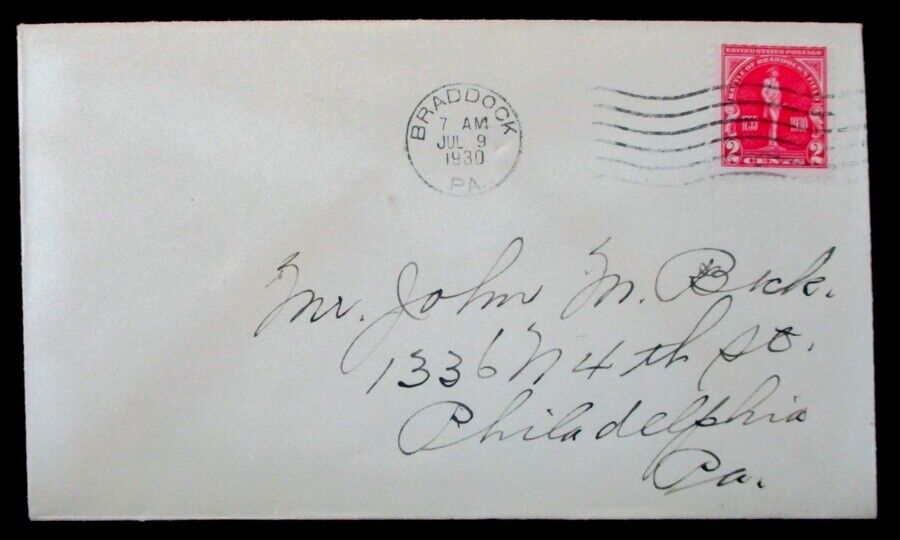 BRADDOCK
7 AM
JUL 9
1930
PA.
UNITED STATES POSTAGE
BATTLE OF BRADDOCK'S FIELD
1755 1930
2 CENTS 2
Mr. John M. Bick.
1336 N 4th St.
Philadelphia
Pa.